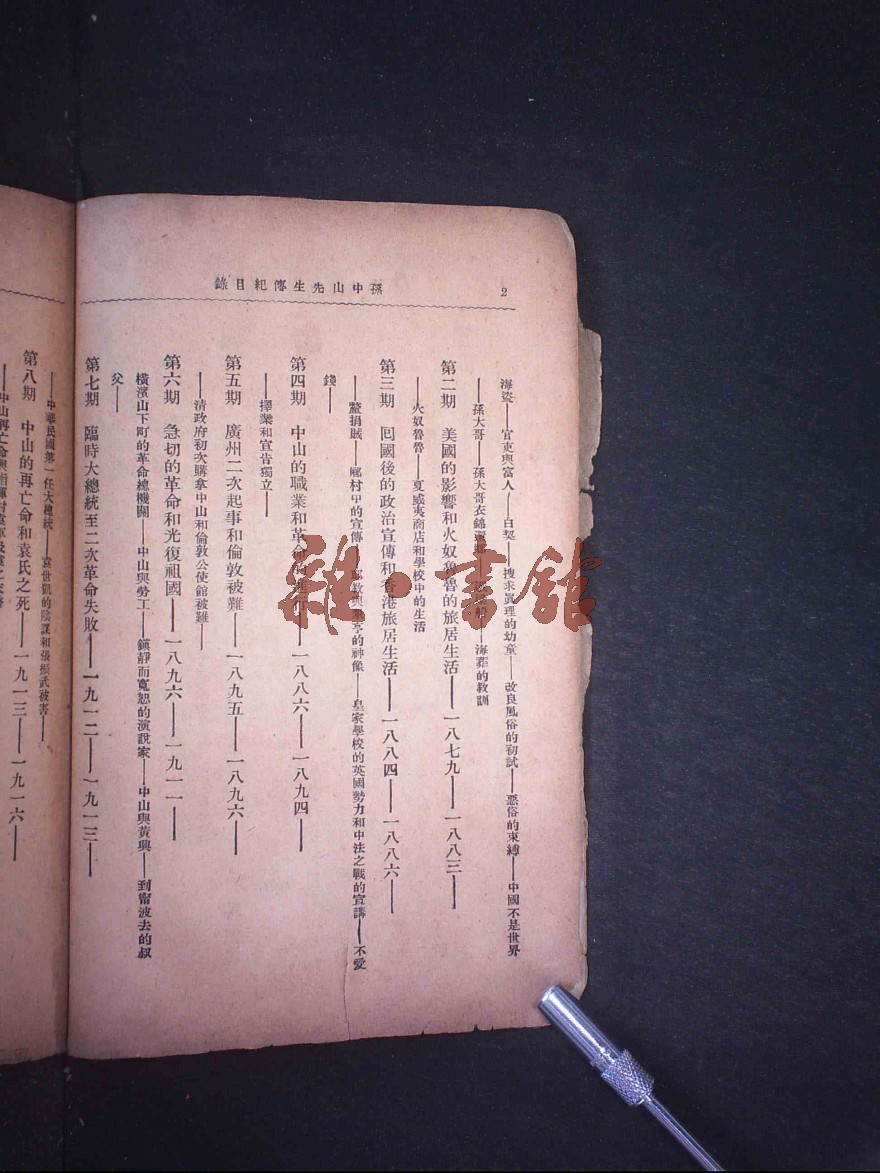 孫中山先生傳紀目錄
2
海盜——官吏與富人——白契——搜求眞理的幼童——改良風俗的初試——惡俗的束縛——中國不是世界
——孫大哥——孫大哥衣錦——海葬的教訓
第二期　美國的影響和火奴魯魯的旅居生活——一八七九——一八八三——
——火奴魯魯——夏威夷商店和學校中的生活
第三期　囘國後的政治宣傳和香港旅居生活——一八八四——一八八六——
——釐捐賊——鄉村中的宣傳——的神像——皇家學校的英國勢力和中法之戰的宣講——不愛
錢——
第四期　中山的職業和革命的進行——一八八六——一八九四——
——擇業和宣吿獨立——
第五期　廣州二次起事和倫敦被難——一八九五——一八九六——
——清政府初次購拿中山和倫敦公使館被難——
第六期　急切的革命和光復祖國——一八九六——一九一一——
橫濱山下町的革命總機關——中山與勞工——鎭靜而寬恕的演說家——中山與黃興——到甯波去的叔
父——
第七期　臨時大總統至二次革命失敗——一九一二——一九一三——
——中華民國第一任大總統——袁世凱的陰謀和張振武被害——
第八期　中山的再亡命和袁氏之死——一九一三——一九一六——
——中山再亡命與
雜·書館